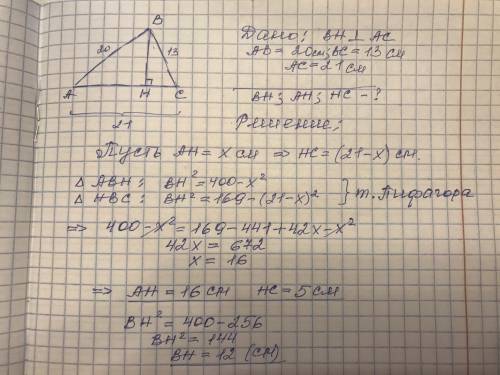 B
20
13
A
H
C
21
Дано: BH ⊥ AC
AB = 20см; BC = 13 см
AC = 21 см
BH; AH; HC - ?
Решение:
Пусть AH = x см ⇒ HC = (21-x) см.
△ ABH: BH² = 400 - x²
△ HBC: BH² = 169 - (21-x)² } т. Пифагора
⇒ 400 - x² = 169 - 441 + 42x - x²
42x = 672
x = 16
⇒ AH = 16 см HC = 5 см
BH² = 400 - 256
BH² = 144
BH = 12 (см)